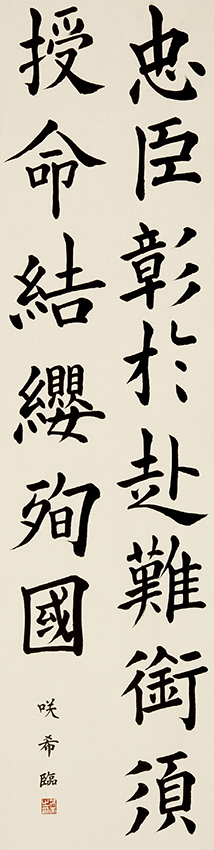 忠臣彰於赴難銜須
授命結纓殉國
咲希臨